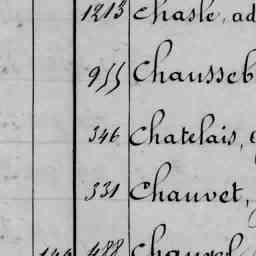 1213 Chasle, ad
955 Chausseb
346 Chatelais,
331 Chauvet,
488